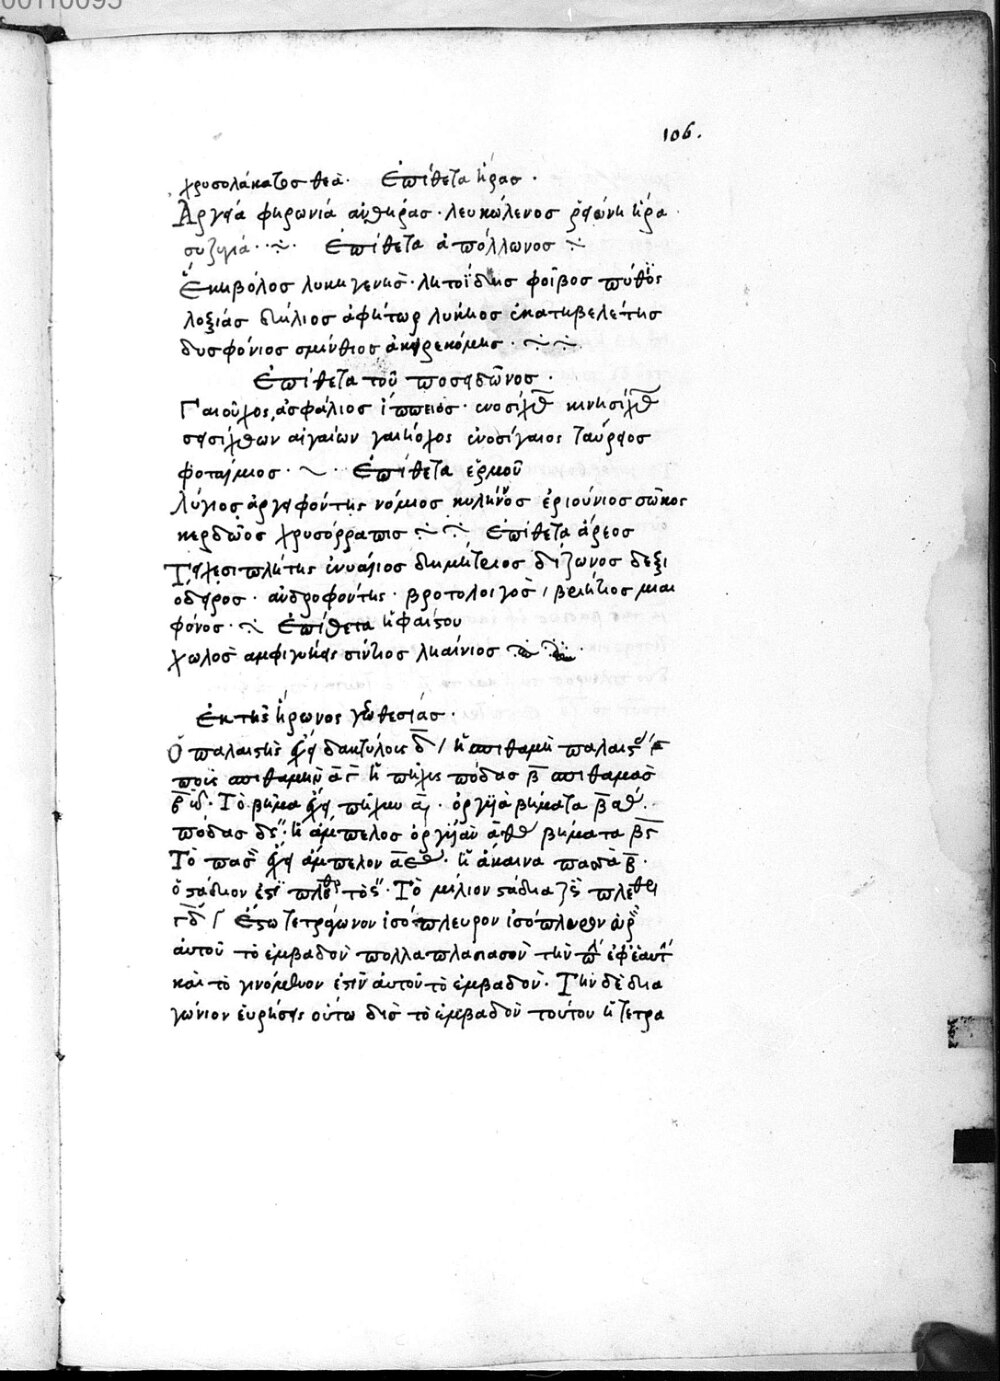 00110095
106.
χρυσολάκατος θεὰ. Ἐπίθετα ἥρας.
Ἀργεία φηρωνιά ἀνθηράς. λευκώλενος ἥρα
συζυγία. Ἐπίθετα ἀπόλλωνος
Ἑκηβόλος λυκηγενὴς. λητοΐδης φοῖβος πύθιος
λοξιάς δήλιος ἀφήτωρ λυκήιος ἑκατηβελέτης
δυσφόνιος σμίνθιος ἀκερεκόμης.
Ἐπίθετα τοῦ ποσειδῶνος.
Γαιοῦχος, ἀσφάλιος ἵππειος. ενοσίχθ κινησίχθ
σεισίχθων αἰγαίων γαιήοχος ἐνοσίγαιος ταύρειος
φοταίμιος. Ἐπίθετα ἑρμοῦ
λόγιος ἀργειφόντης νόμιος κυλήνιος ἐριούνιος σῶκος
κερδῶος χρυσόρραπις Ἐπίθετα ἄρεος
Τειχεσιπλήτης ἐνυάλιος δίζωνος δεξι
όδωρος. ἀνδροφόντης. βροτολοιγὸς βριήπιος μιαι
φόνος. Ἐπίθετα ἡφαίστου
χωλὸς αμφιγυήεις σίντιος λημνιος
Ἐκ τῆς ἥρωνος γεωθεσίας.
Ὁ παλαιστὴς ἔχει δακτύλους δ ἡ σπιθαμὴ παλαιστ
ποὺς σπιθαμὴν α ὁ πῆχις πόδας β σπιθαμὰς
Τὸ βῆμα ἔχει πήχυν α. ὀργυιὰ βήματα β
πόδας ἡ ἄμπελος ὀργυιὰν α βήματα β
Τὸ πασ ἔχει ἄμπελον α ἡ ἄκαινα β.
ὁ στάδιον ἔχει πλεθ. Τὸ μίλιον στάδια πλεθ
Ἔστω τετράγωνον ἰσόπλευρον
αὐτοῦ τὸ ἐμβαδὸν πολλαπλασίασον τὴν πλ ἐφ ἑαυτ
καὶ τὸ γινόμενον ἐστὶν αὐτοῦ τὸ ἐμβαδὸν. Τὴν δὲ δια
γώνιον εὑρήσεις οὕτω δὶς τὸ ἐμβαδὸν τούτου ἡ τετρα